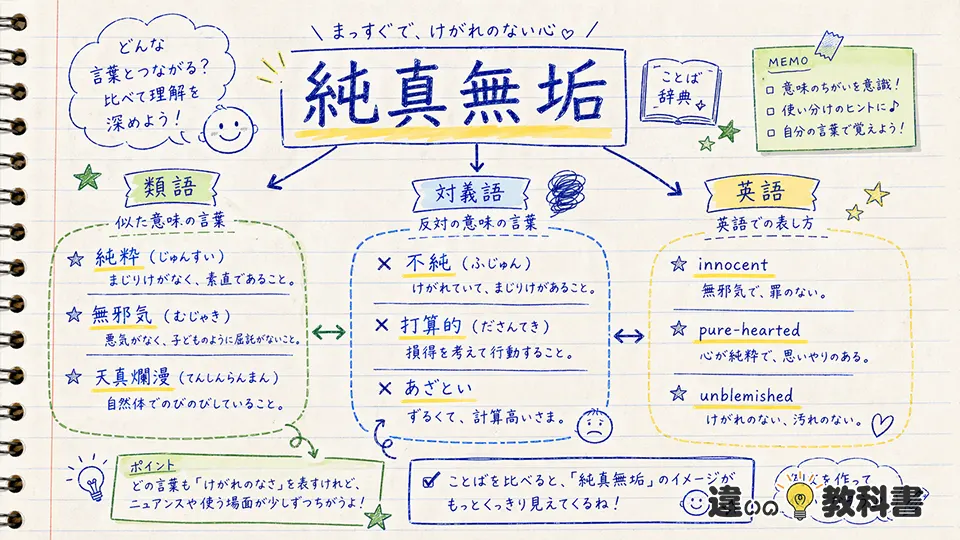 どんな
言葉とつながる?
比べて理解を
深めよう!
まっすぐで、けがれのない心♡
純真無垢
ことば
辞典
MEMO
□ 意味のちがいを意識!
□ 使い分けのヒントに♪
□ 自分の言葉で覚えよう!
類語
似た意味の言葉
☆ 純粋(じゅんすい)
まじりけがなく、素直であること。
☆ 無邪気(むじゃき)
悪気がなく、子どものように屈託がないこと。
☆ 天真爛漫(てんしんらんまん)
自然体でのびのびしていること。
対義語
反対の意味の言葉
× 不純(ふじゅん)
けがれていて、まじりけがあること。
× 打算的(ださんてき)
損得を考えて行動すること。
× あざとい
ずるくて、計算高いさま。
英語
英語での表し方
☆ innocent
無邪気で、罪のない。
☆ pure-hearted
心が純粋で、思いやりのある。
☆ unblemished
けがれのない、汚れのない。
ポイント
どの言葉も「けがれのなさ」を表すけれど、
ニュアンスや使う場面が少しずつちがうよ!
ことばを比べると、「純真無垢」のイメージが
もっとくっきり見えてくるね!
を作って
違いの教科書